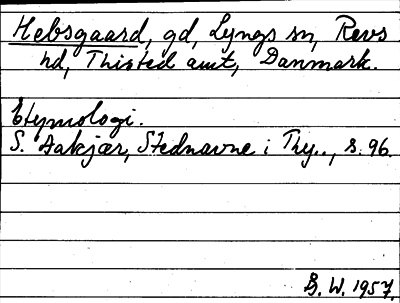 Hebsgaard, gd, Lyngs sn, Revs
hd, Thisted amt, Danmark.
Etymologi.
S. Aakjær, Stednavne i Thy.., s. 96.
G. W. 1957.